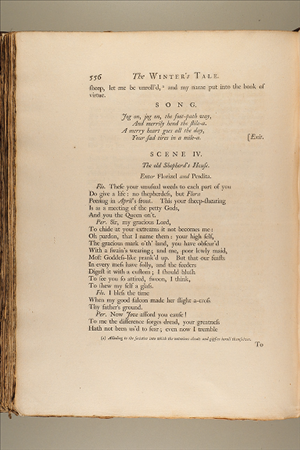 556 The WINTER's TALE.
sheep, let me be unroll'd, and my name put into the book of
virtue.
SONG.
Jog on, jog on, the foot-path way,
And merrily hend the stile-a.
A merry heart goes all the day,
Your sad tires in a mile-a. [Exit.
SCENE IV.
The old Shepherd's House.
Enter Florizel and Perdita.
Flo. These your unusual weeds to each part of you
Do give a life: no shepherdess, but Flora
Peering in April's front. This your sheep-shearing
Is as a meeting of the petty Gods,
And you the Queen on't.
Per. Sir, my gracious Lord,
To chide at your extreams it not becomes me:
Oh pardon, that I name them: your high self,
The gracious mark o'th' land, you have obscur'd
With a swain's wearing; and me, poor lowly maid,
Most Goddess-like prank'd up. But that our feasts
In every mess have folly, and the feeders
Digest it with a custom; I should blush
To see you so attired, sworn, I think,
To shew my self a glass.
Flo. I bless the time
When my good falcon made her flight a-cross
Thy father's ground.
Per. Now Jove afford you cause!
To me the difference forges dread, your greatness
Hath not been us'd to fear; even now I tremble
(a) Alluding to the societies into which the notorious cheats and gypsies inroll themselves.
To